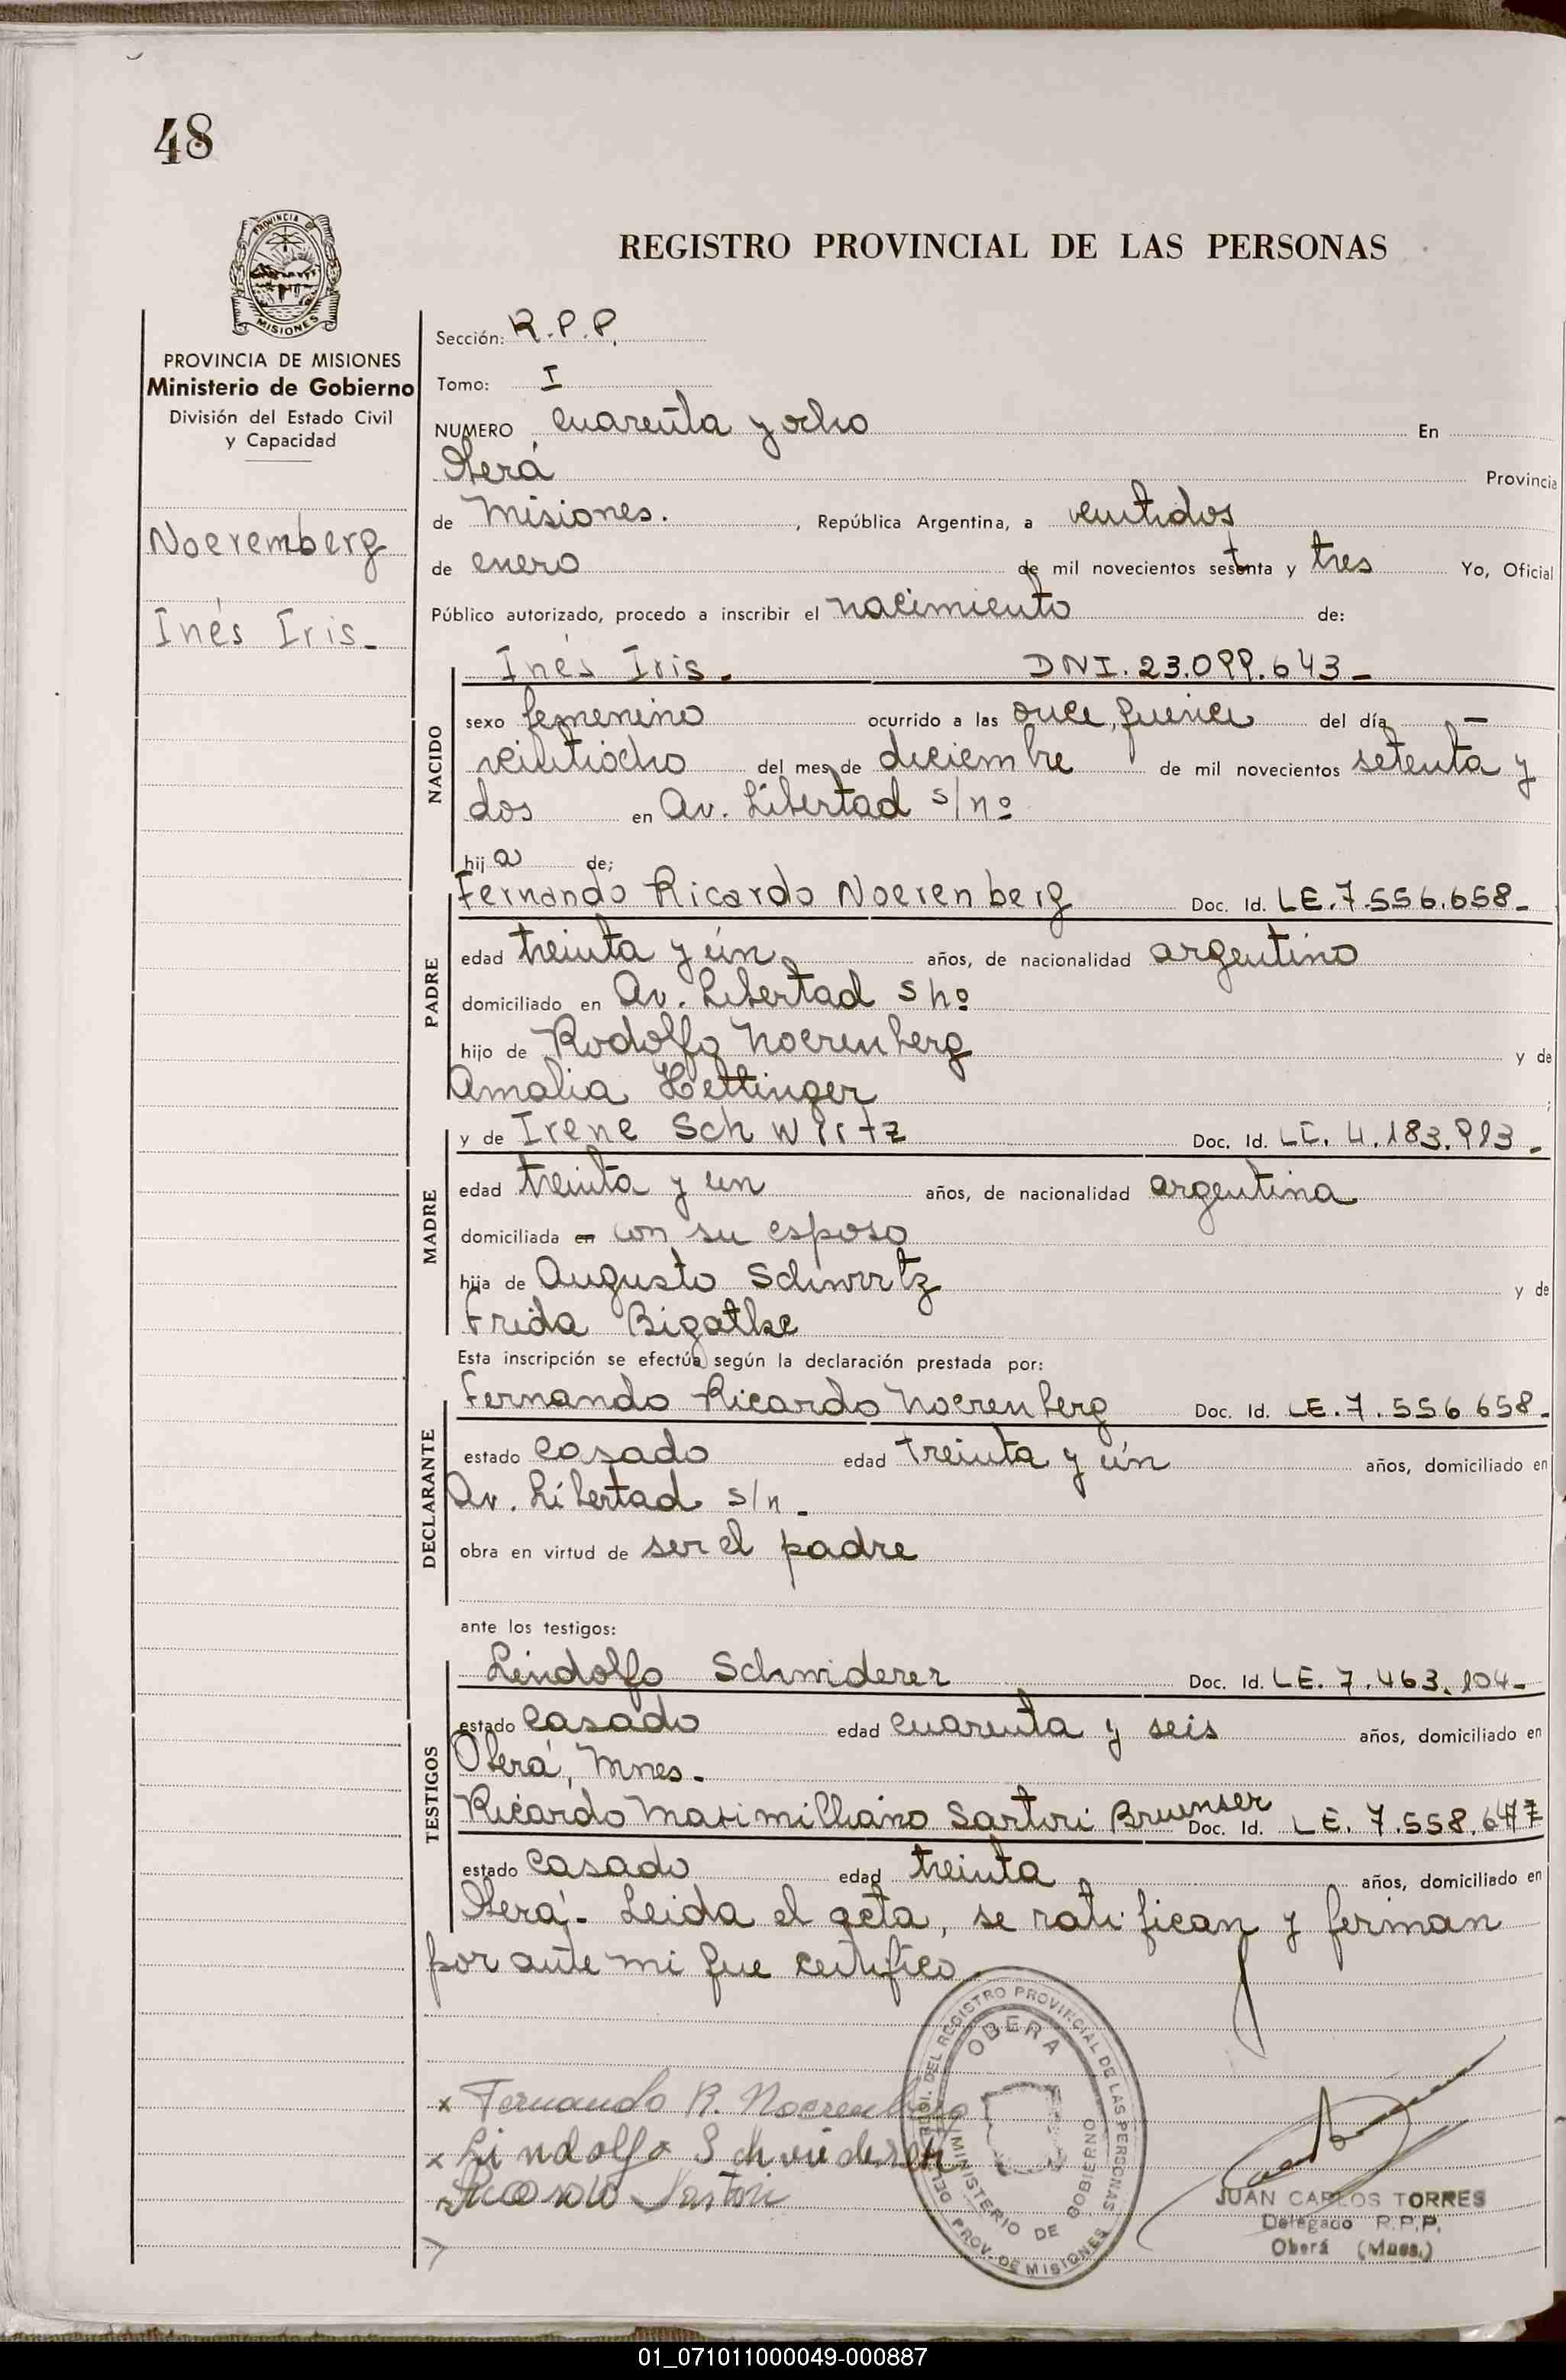 48
PROVINCIA DE
MISIONES
REGISTRO PROVINCIAL DE LAS PERSONAS
PROVINCIA DE MISIONES
Ministerio de Gobierno
División del Estado Civil
y Capacidad
Noeremberg
Inés Iris-
Sección: R.P.P.
Tomo: I
NUMERO cuarenta y ocho En
Oberá Provincia
de Misiones. , República Argentina, a veintidos
de enero de mil novecientos setenta y tres Yo, Oficial
Público autorizado, procedo a inscribir el nacimiento de:
Inés Iris. DNI. 23.099.643-
NACIDO
sexo femenino ocurrido a las once, quince del día —
veintiocho del mes de diciembre de mil novecientos setenta y
dos en Av. Libertad s/nº
hij a de;
PADRE
Fernando Ricardo Noerenberg Doc. Id. LE. 7.556.658-
edad treinta y ún años, de nacionalidad argentino
domiciliado en Av. Libertad s nº
hijo de Rodolfo Noerenberg y de
Amalia Hettinger ;
MADRE
y de Irene Schwirtz Doc. Id. LC. 4.183.913-
edad treinta y un años, de nacionalidad argentina
domiciliada en con su esposo
hija de Augusto Schwirtz y de
Frida Bigathe
Esta inscripción se efectúa según la declaración prestada por:
DECLARANTE
Fernando Ricardo Noerenberg Doc. Id. LE. 7.556 658-
estado casado edad treinta y ún años, domiciliado en
Av. Libertad s/n -
obra en virtud de ser el padre
ante los testigos:
TESTIGOS
Lindolfo Schmiderer Doc. Id. LE. 7.463.104-
estado casado edad cuarenta y seis años, domiciliado en
Oberá, Mnes-
Ricardo Maximilliano Sartori Bruenser Doc. Id. LE. 7.558.647
estado casado edad treinta años, domiciliado en
Oberá- Leida el acta, se ratifican y firman
por ante mi que certifico
Fernando R. Noerenberg
Lindolfo Schmiderer
Sartori
DEL REGISTRO PROVINCIAL DE LAS PERSONAS
OBERA
MINISTERIO DE GOBIERNO
PROV. DE MISIONES
JUAN CARLOS TORRES
Delegado R.P.P.
Oberá (Mnes.)
01_071011000049-000887